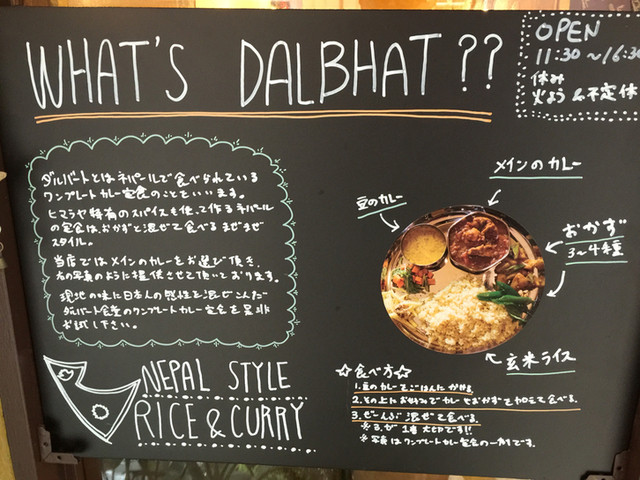 WHAT'S DALBHAT??
OPEN
11:30〜16:30
休み
火よう&不定休
ダルバートとはネパールで食べられている
ワンプレートカレー定食のことをいいます。
ヒマラヤ特有のスパイスも使って作るネパール
の定食は、おかずと混ぜて食べるまぜまぜ
スタイル。
当店ではメインのカレーをお選び頂き、
右の写真のように提供させて頂いております。
現地の味に日本人の感性を混ぜこんだ
ダルバート食堂のワンプレートカレー定食を是非
お試し下さい。
NEPAL STYLE
RICE & CURRY
メインのカレー
豆のカレー
おかず
3〜4種
玄米ライス
☆食べ方☆
1.豆のカレーをごはんにかける。
2.その上にお好みでカレーとおかずを加えて食べる。
3.ぜーんぶ混ぜて食べる。
※3が1番大切です!!
※写真はワンプレートカレー定食の一例です。